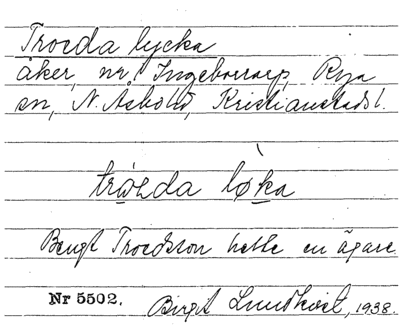 Troeda lycka
åker, nr. Ingeborrarp, Rya
sn, N. Åsbohd, Kristianstads l.
løka
Bengt Troedsson hette en ägare.
Nr 5502. Birgit Lundkvist, 1938.